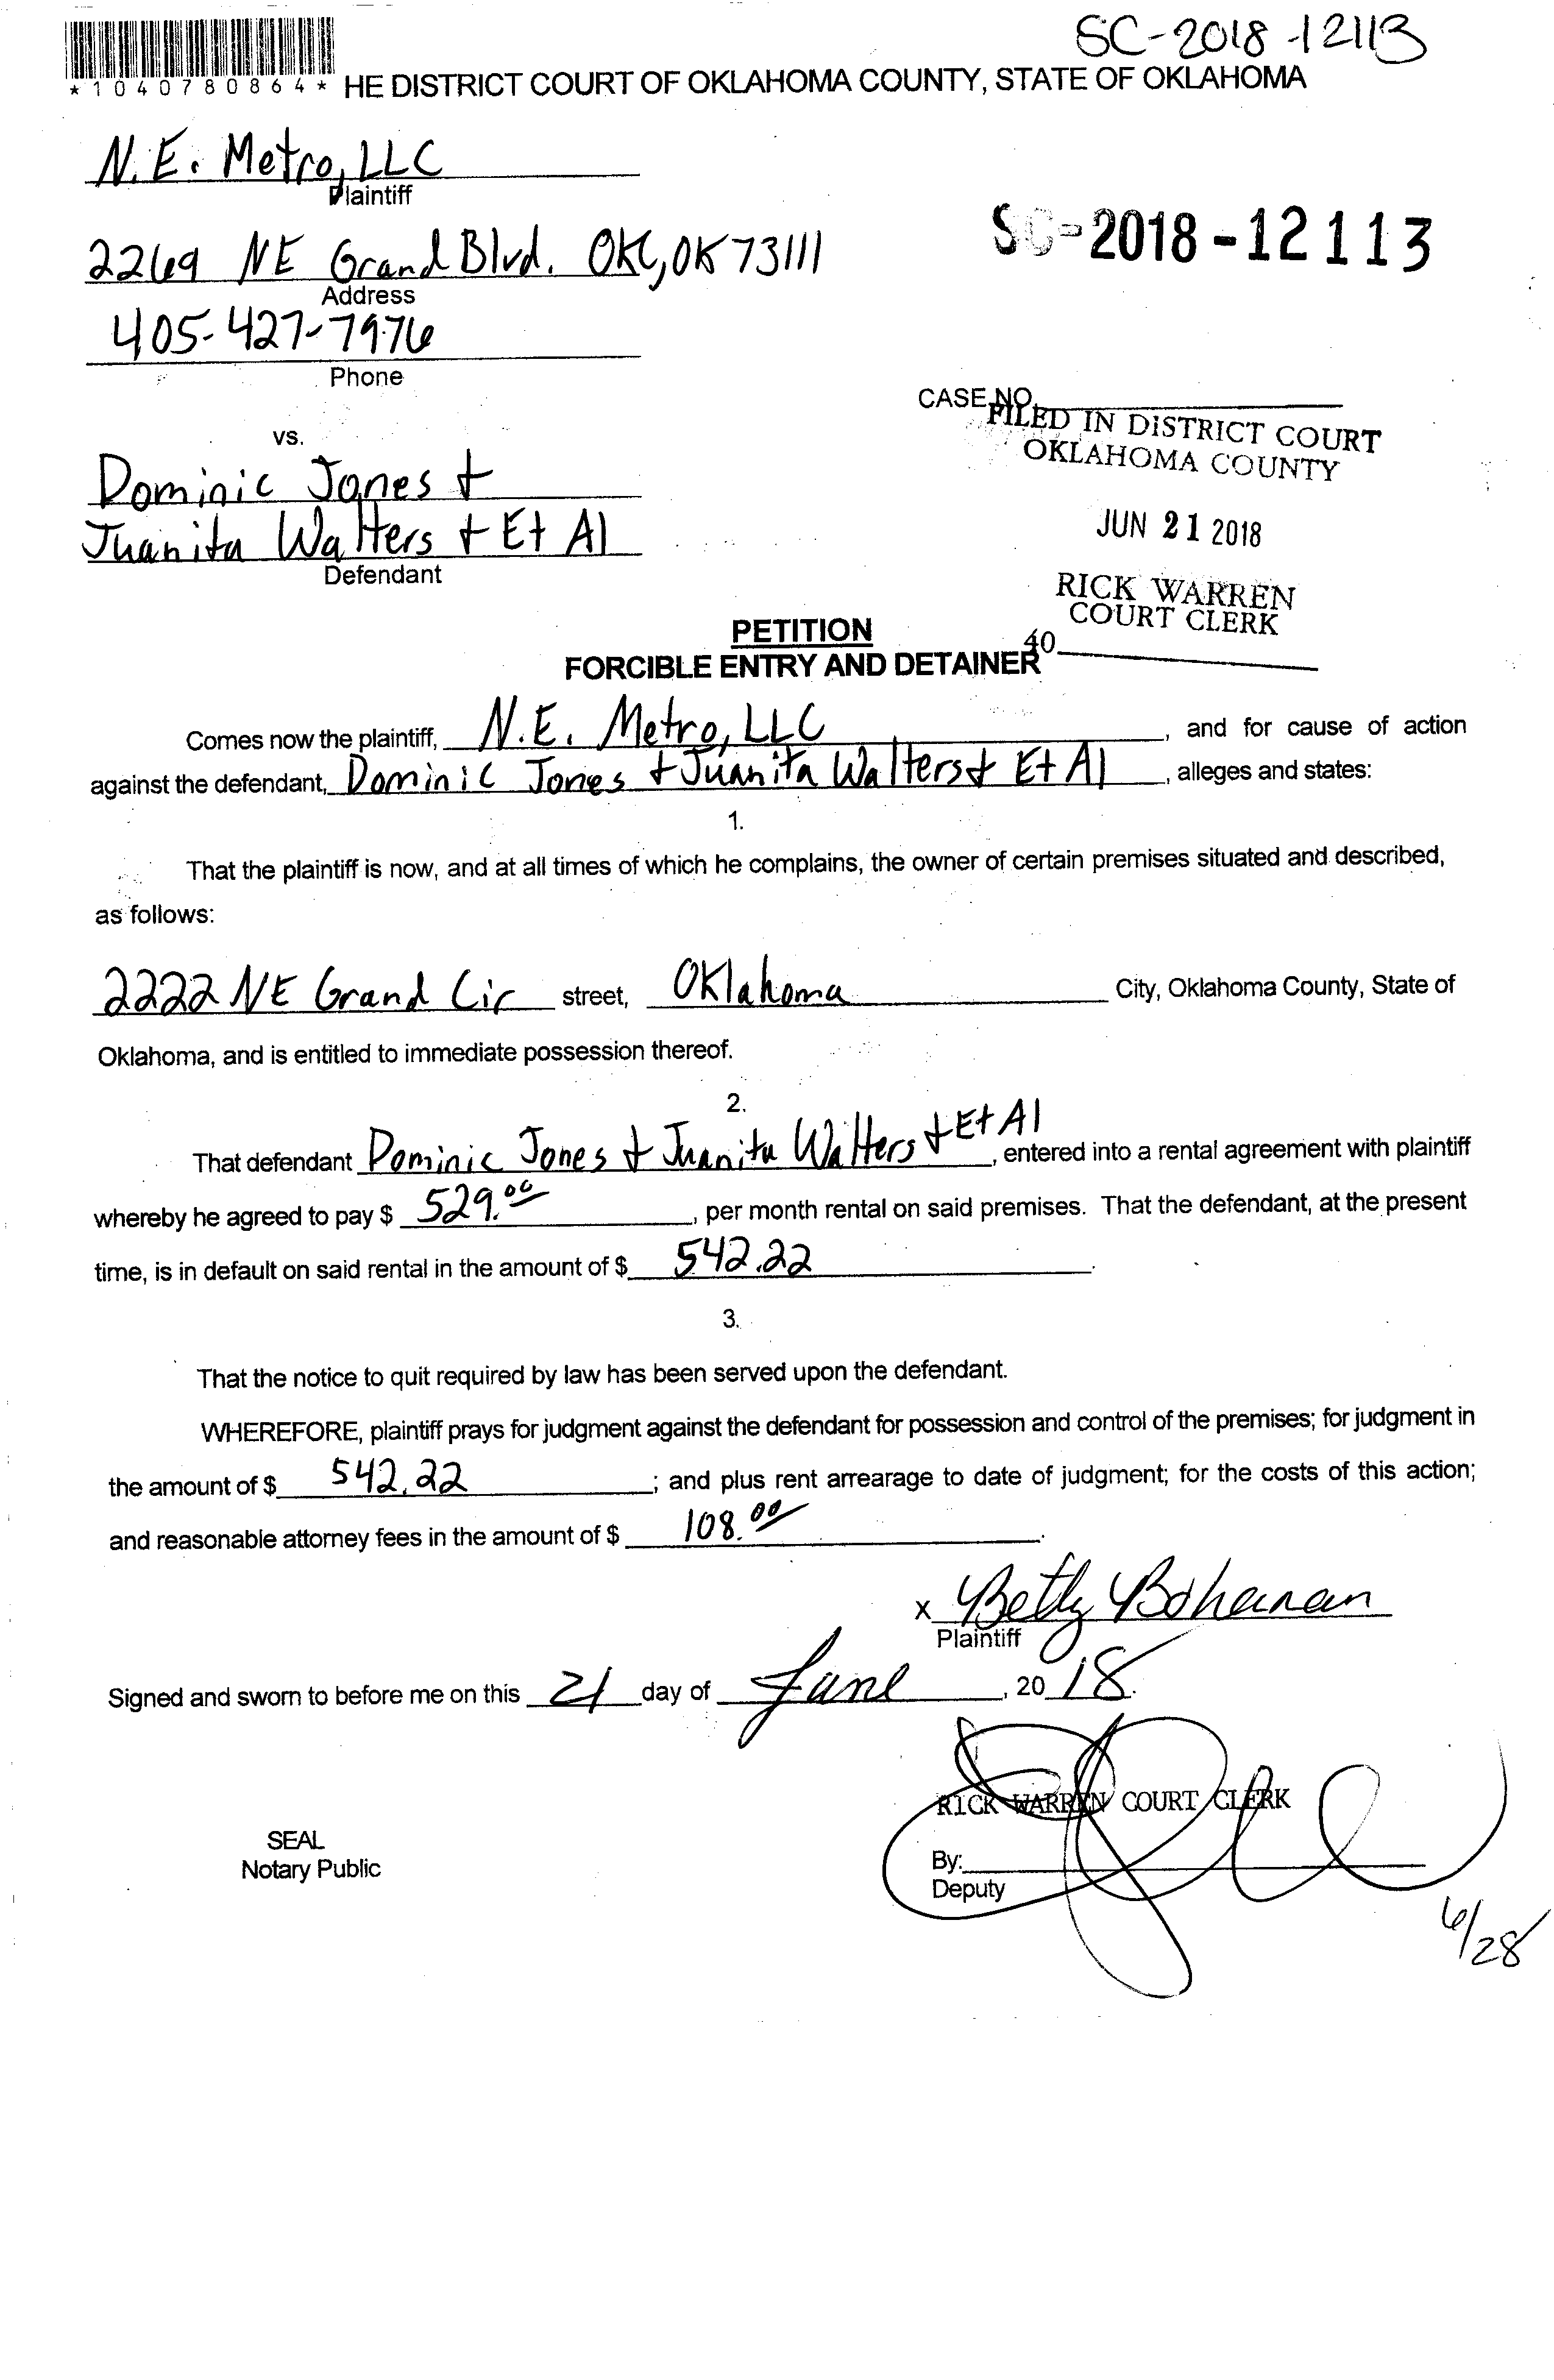 SC-2018-12113
*1040780864* HE DISTRICT COURT OF OKLAHOMA COUNTY, STATE OF OKLAHOMA
N.E. Metro, LLC
Plaintiff
2269 NE Grand Blvd. OKC, OK 73111
SC-2018-12113
Address
405-427-7976
Phone
CASE NO.
FILED IN DISTRICT COURT
OKLAHOMA COUNTY
vs.
Dominic Jones +
Juanita Walters + Et Al
JUN 21 2018
Defendant
RICK WARREN
COURT CLERK
PETITION
40
FORCIBLE ENTRY AND DETAINER
Comes now the plaintiff, N.E. Metro, LLC, and for cause of action
against the defendant, Dominic Jones + Juanita Walters + Et Al, alleges and states:
1.
That the plaintiff is now, and at all times of which he complains, the owner of certain premises situated and described,
as follows:
2222 NE Grand Cir street, Oklahoma City, Oklahoma County, State of
Oklahoma, and is entitled to immediate possession thereof.
2.
That defendant Dominic Jones + Juanita Walters + Et Al, entered into a rental agreement with plaintiff
whereby he agreed to pay $ 529.00, per month rental on said premises. That the defendant, at the present
time, is in default on said rental in the amount of $ 542.22.
3.
That the notice to quit required by law has been served upon the defendant.
WHEREFORE, plaintiff prays for judgment against the defendant for possession and control of the premises; for judgment in
the amount of $ 542.22; and plus rent arrearage to date of judgment; for the costs of this action;
and reasonable attorney fees in the amount of $ 108.00.
x Betty Bohanan
Plaintiff
Signed and sworn to before me on this 21 day of June, 2018.
RICK WARREN COURT CLERK
SEAL
Notary Public
By:
Deputy
6/28